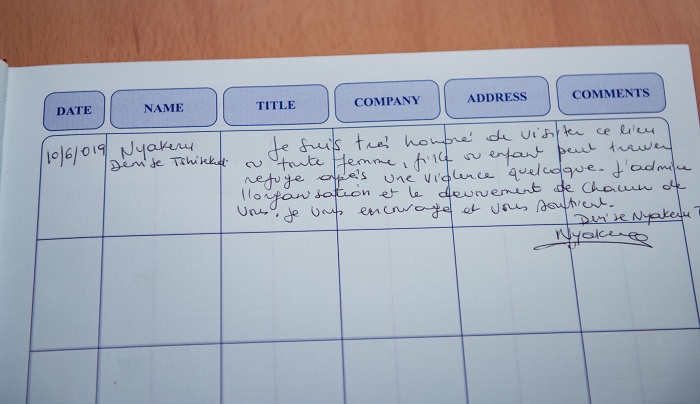 DATE NAME TITLE COMPANY ADDRESS COMMENTS
10/6/019 Nyakeru
Denise Tshisekedi
Je suis très honoré de visiter ce lieu
ou toute femme, fille ou enfant peut trouver
refuge après une violence quelcoque. J'admire
l'organisation et le devouement de chacun de
vous. Je vous encourage et vous soutient.
Denise Nyakeru T
Nyakeru